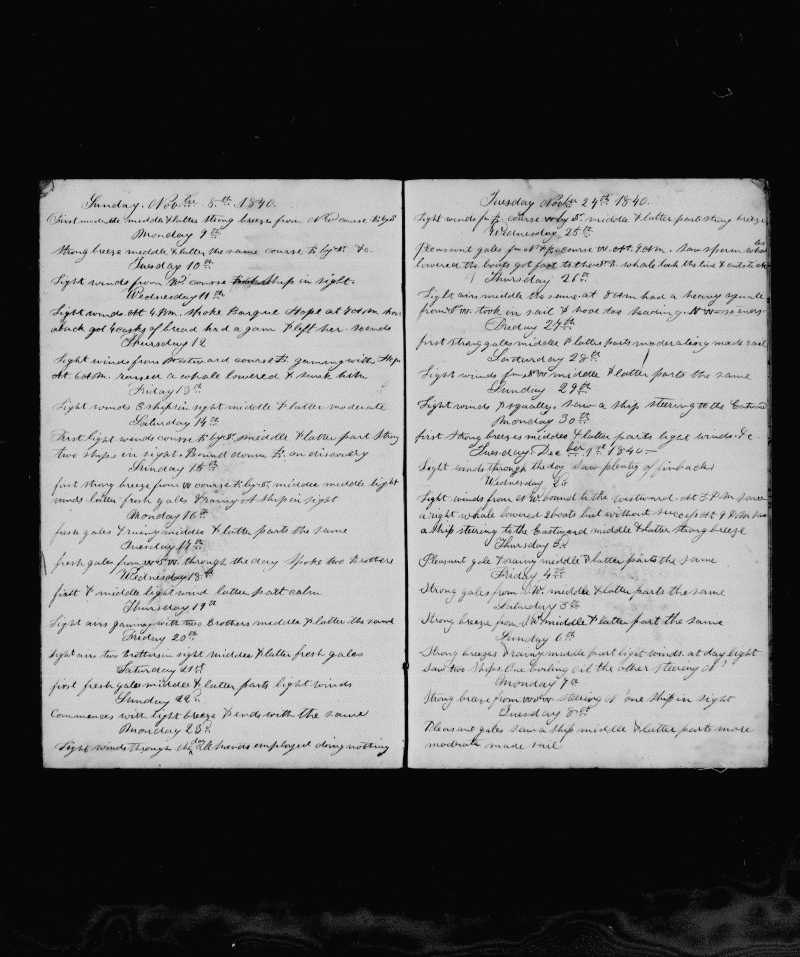 Sunday. Nov.ber 8th 1840.
First moderate middle & latter strong breeze from N course E by S
Monday 9th
Strong breeze middle & latter the same course E by S. &c.
Tuesday 10th
Light winds from course ship in sight.
Wednesday 11th
Light winds At 4.P.M. spoke Barque Hope at 7 A.M.
aback got 4 casks of bread had a gam & left her. Winds
Thursday 12
Light winds from Eastward course E. gaming with Hope
At 6 A.M. raised a whale lowered & sunk him
Friday 13th
Light winds & ship in sight middle & latter moderate
Saturday 14th
First light winds course E by S. middle & latter part strong
two ships in sight. Bound down E. on discovery
Sunday 15th
first strong breeze from W course E by S. middle middle light
winds latter fresh gales & rainy A ship in sight
Monday 16th
fresh gales & rainy middle & latter parts the same
Tuesday 17th
fresh gales from W S W. through the day Spoke two Brothers
Wednesday 18th
first & middle light wind latter part calm
Thursday 19th
Light airs gaming with two Brothers middle & latter the same
Friday 20th
Light airs two Brothers in sight middle & latter fresh gales
Saturday 21st
first fresh gales middle & latter parts light winds
Sunday 22d
Commences with light breeze & ends with the same
Monday 23d
Light winds through the day All hands employed doing nothing
Tuesday Nov.ber 24th 1840.
Light winds course by S. middle & latter parts strong breeze
Wednesday 25th
Pleasant gales course W. At 9 A.M. saw sperm whales
lowered the boats got fast to whale took the line &
Thursday 26th
Light airs middle the same. at 8 A.M had a heavy squall
from S W. took in sail & hove too heading N W
Friday 27th
first strong gales middle & latter parts moderating made sail
Saturday 28th
Light winds middle & latter parts the same
Sunday 29th
Light winds & squally. Saw a ship steering to the Eastward
Monday 30th
first strong breezes middle & latter parts light winds. &c
Tuesday Dec.ber 1st 1840
Light winds through the day Saw plenty of finbacks
Wednesday 2d
Light winds from N W. bound to the westward. At 3 P.M saw
a right whale lowered 2 boats but without success At 9 A.M saw
a ship steering to the Eastward middle & latter strong breeze
Thursday 3d
Pleasant gale & rainy middle & latter parts the same
Friday 4th
Strong gales from middle & latter parts the same
Saturday 5th
Strong breeze from middle & latter part the same
Sunday 6th
Strong breezes & rainy middle part light winds. at day light
saw two ships. One boiling oil the other steering N
Monday 7th
Strong breeze from W S W steering N one ship in sight
Tuesday 8th
Pleasant gales saw a ship middle & latter parts more
moderate made sail